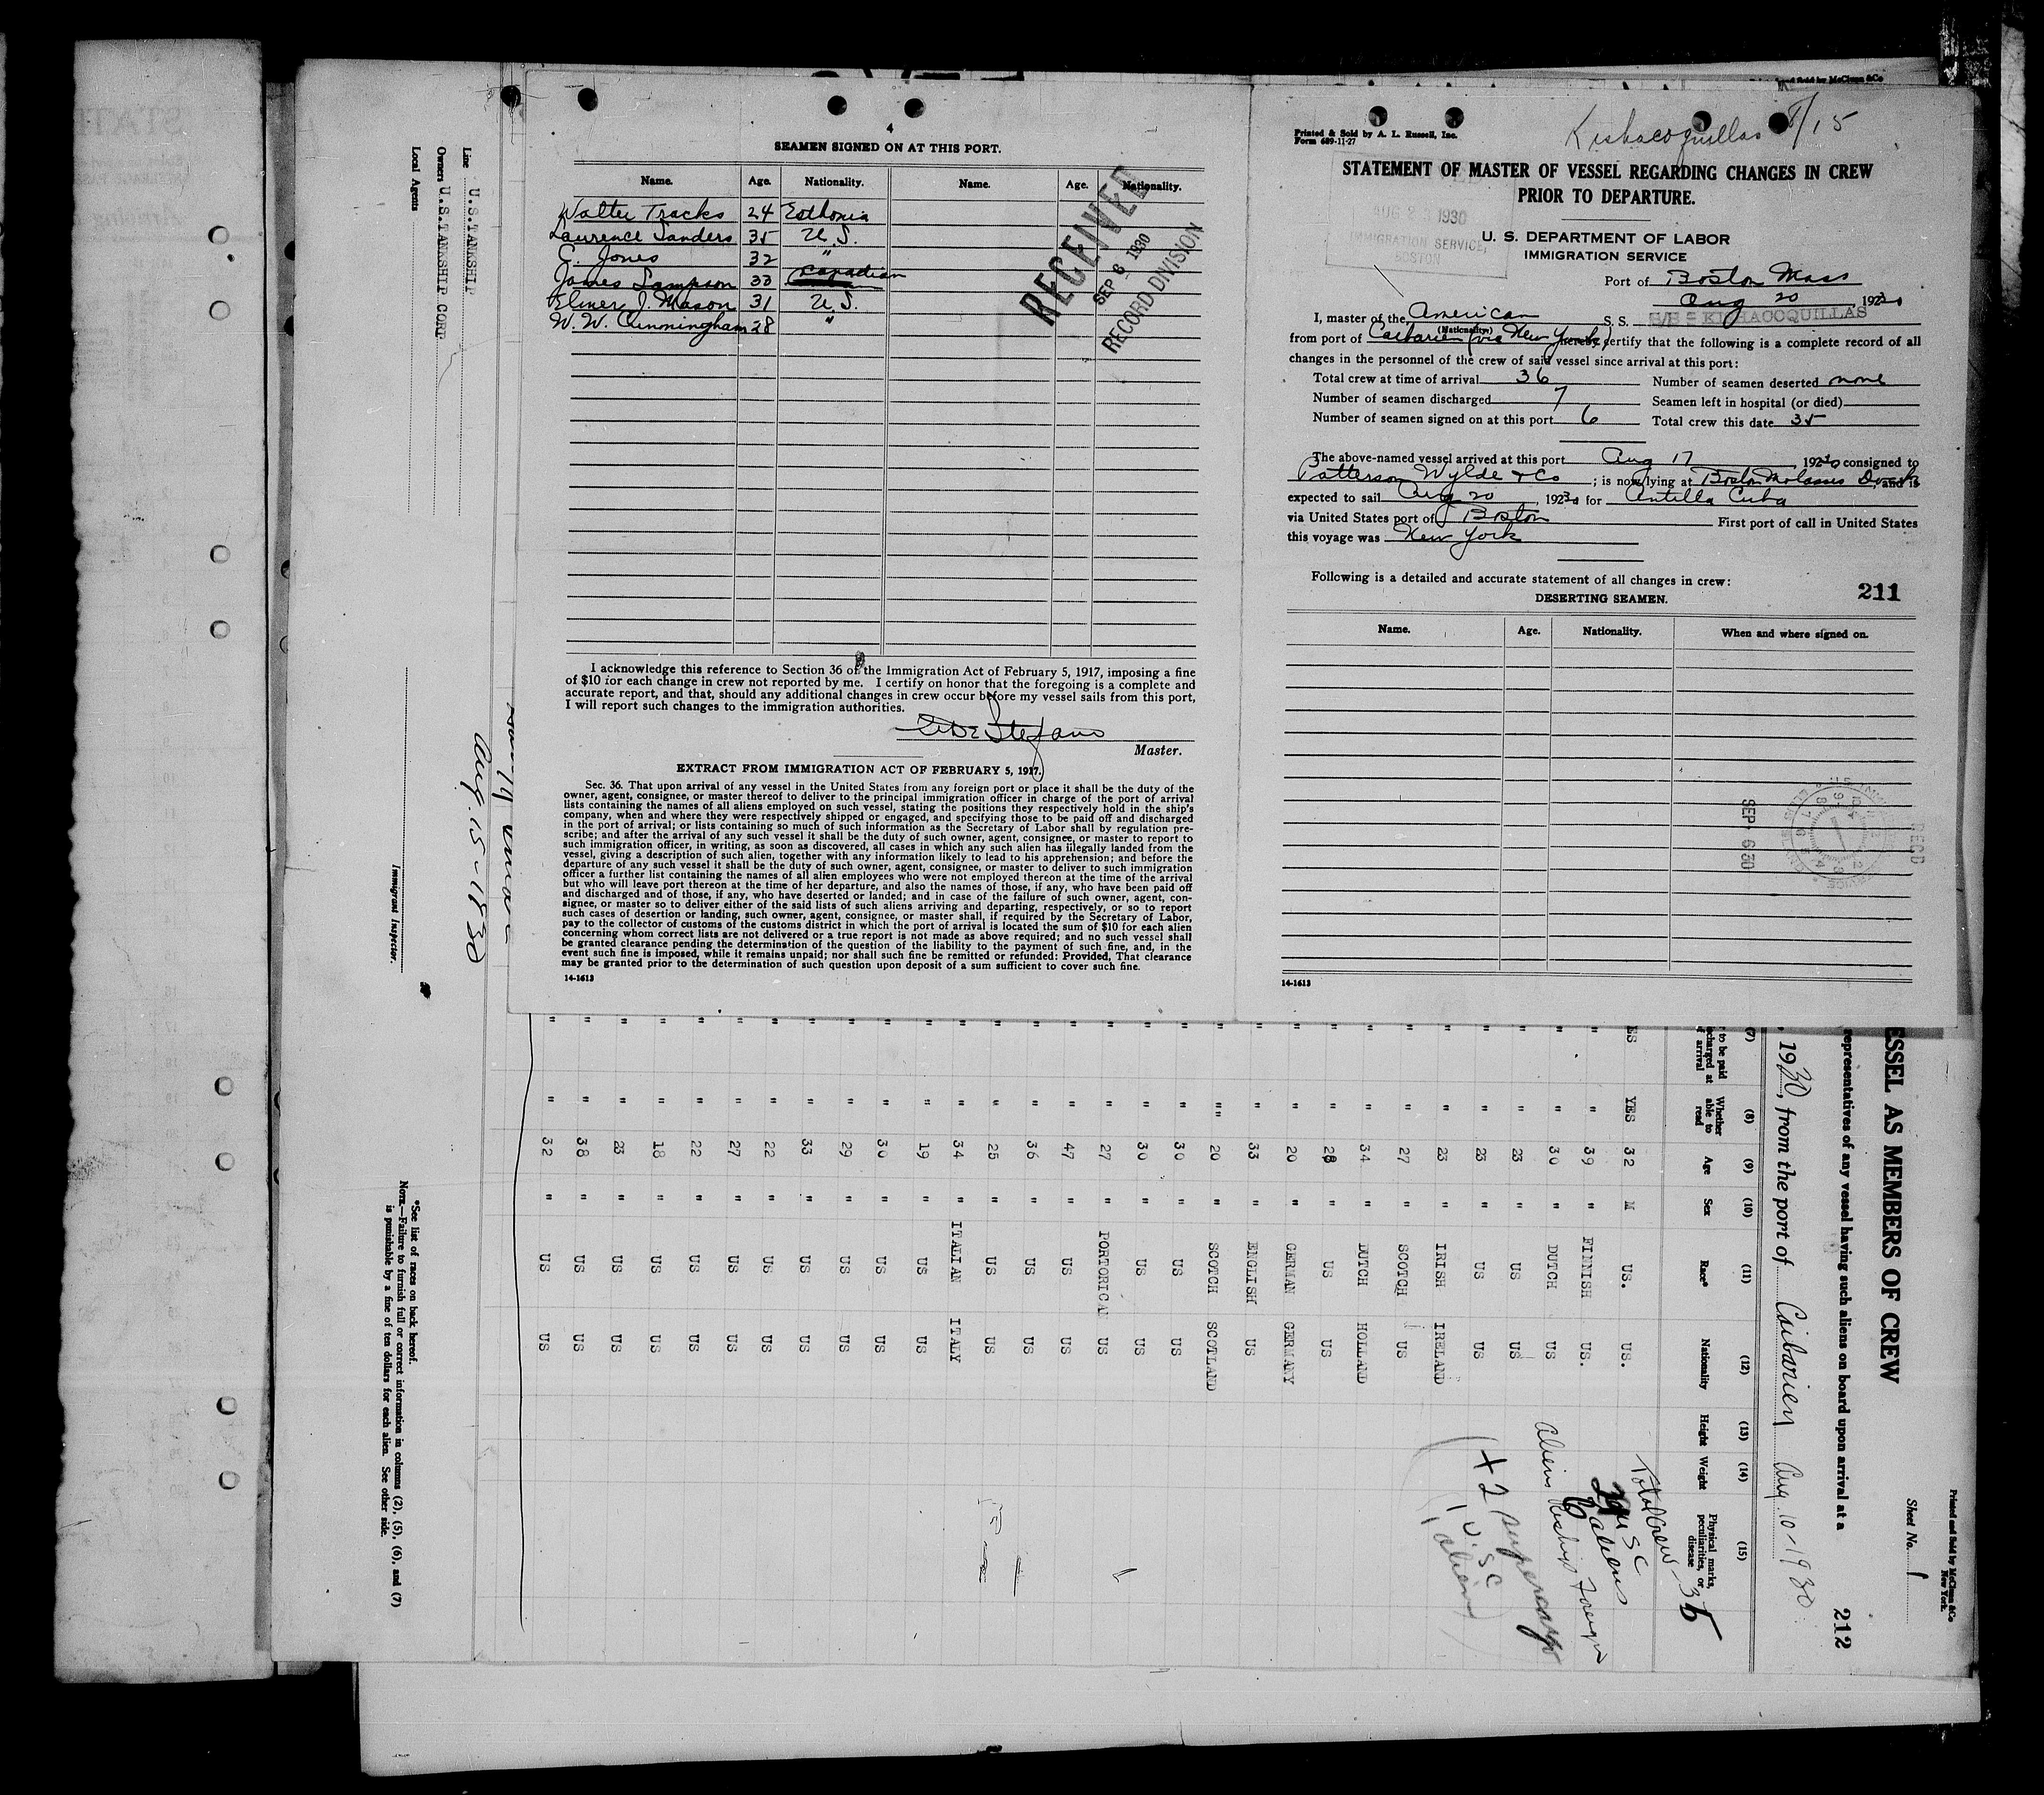 4
SEAMEN SIGNED ON AT THIS PORT.
Name. Age. Nationality. Name. Age. Nationality.
Walter Tracks 24 Esthonia
Laurence Sanders 35 U.S.
C. Jones 32 "
James Sampson 33 Canadian
Elmer J. Mason 31 U.S.
W. W. Cunningham 28 "
RECEIVED
SEP 6 1930
RECORD DIVISION
I acknowledge this reference to Section 36 of the Immigration Act of February 5, 1917, imposing a fine
of $10 for each change in crew not reported by me. I certify on honor that the foregoing is a complete and
accurate report, and that, should any additional changes in crew occur before my vessel sails from this port,
I will report such changes to the immigration authorities.
Stefano
Master.
EXTRACT FROM IMMIGRATION ACT OF FEBRUARY 5, 1917.
Sec. 36. That upon arrival of any vessel in the United States from any foreign port or place it shall be the duty of the
owner, agent, consignee, or master thereof to deliver to the principal immigration officer in charge of the port of arrival
lists containing the names of all aliens employed on such vessel, stating the positions they respectively hold in the ship's
company, when and where they were respectively shipped or engaged, and specifying those to be paid off and discharged
in the port of arrival; or lists containing so much of such information as the Secretary of Labor shall by regulation pre-
scribe; and after the arrival of any such vessel it shall be the duty of such owner, agent, consignee, or master to report to
such immigration officer, in writing, as soon as discovered, all cases in which any such alien has illegally landed from the
vessel, giving a description of such alien, together with any information likely to lead to his apprehension; and before the
departure of any such vessel it shall be the duty of such owner, agent, consignee, or master to deliver to such immigration
officer a further list containing the names of all alien employees who were not employed thereon at the time of the arrival
but who will leave port thereon at the time of her departure, and also the names of those, if any, who have been paid off
and discharged and of those, if any, who have deserted or landed; and in case of the failure of such owner, agent, con-
signee, or master so to deliver either of the said lists of such aliens arriving and departing, respectively, or so to report
such cases of desertion or landing, such owner, agent, consignee, or master shall, if required by the Secretary of Labor,
pay to the collector of customs of the customs district in which the port of arrival is located the sum of $10 for each alien
concerning whom correct lists are not delivered or a true report is not made as above required; and no such vessel shall
be granted clearance pending the determination of the question of the liability to the payment of such fine, and, in the
event such fine is imposed, while it remains unpaid; nor shall such fine be remitted or refunded: Provided, That clearance
may be granted prior to the determination of such question upon deposit of a sum sufficient to cover such fine.
14-1613
Kishacoquillas 8/15
Printed & Sold by A. L. Russell, Inc.
Form 689-11-27
STATEMENT OF MASTER OF VESSEL REGARDING CHANGES IN CREW
PRIOR TO DEPARTURE.
AUG 2 1930
IMMIGRATION SERVICE,
BOSTON
U. S. DEPARTMENT OF LABOR
IMMIGRATION SERVICE
Port of Boston Mass
Aug 20, 1930
I, master of the American S. S. S/S KISHACOQUILLAS
(Nationality)
from port of Caibarien (via New York) hereby certify that the following is a complete record of all
changes in the personnel of the crew of said vessel since arrival at this port:
Total crew at time of arrival 36 Number of seamen deserted none
Number of seamen discharged 7 Seamen left in hospital (or died)
Number of seamen signed on at this port 6 Total crew this date 35
The above-named vessel arrived at this port Aug 17, 1930 consigned to
Patterson Wylde & Co; is now lying at Boston Molasses Dock, and is
expected to sail Aug 20, 1930 for Antilla Cuba
via United States port of Boston First port of call in United States
this voyage was New York
Following is a detailed and accurate statement of all changes in crew:
211
DESERTING SEAMEN.
Name. Age. Nationality. When and where signed on.
REC'D
SEP 6 30
14-1613
Printed and Sold by McClunn & Co
New York.
Sheet No. 1
212
ESSEL AS MEMBERS OF CREW
representatives of any vessel having such aliens on board upon arrival at a
, 1930, from the port of Caibarien Aug. 10 - 1930
(7) (8) (9) (10) (11) (12) (13) (14) (15)
to be paid
charged at
arrival
Whether
able to
read
Age
Sex
Race*
Nationality
Height
Weight
Physical marks,
peculiarities, or
disease
ES YES 32 M US. US.
" " 39 " FINNISH US.
" " 30 " DUTCH US
" " 23 " US US
" " 23 " US US
" " 23 " IRISH IRELAND
" " 27 " SCOTCH US
" " 34 " DUTCH HOLLAND
" " 28 " US US
" " 20 " GERMAN GERMANY
" " 33 " ENGLISH US
" " 20 " SCOTCH SCOTLAND
" " 30 " US US
" " 30 " US US
" " 27 " PORTORICAN US
" " 47 " US US
" " 36 " US US
" " 25 " US US
" " 34 " ITALIAN ITALY
" " 19 " US US
" " 30 " US US
" " 29 " US US
" " 33 " US US
" " 22 " US US
" " 27 " US US
" " 22 " US US
" " 18 " US US
" " 23 " US US
" " 38 " US US
" " 32 " US US
Total Crew - 36
USC
6 aliens
Aliens Reship Foreign
(+2 supercargo
1 USC
1 alien)
Line U.S.TANKSHIP
Owners U.S.TANKSHIP CORP
Local Agents
Aug. 15 - 1930
Immigrant Inspector.
*See list of races on back hereof.
NOTE.—Failure to furnish full or correct information in columns (2), (5), (6), and (7)
is punishable by a fine of ten dollars for each alien. See other side.